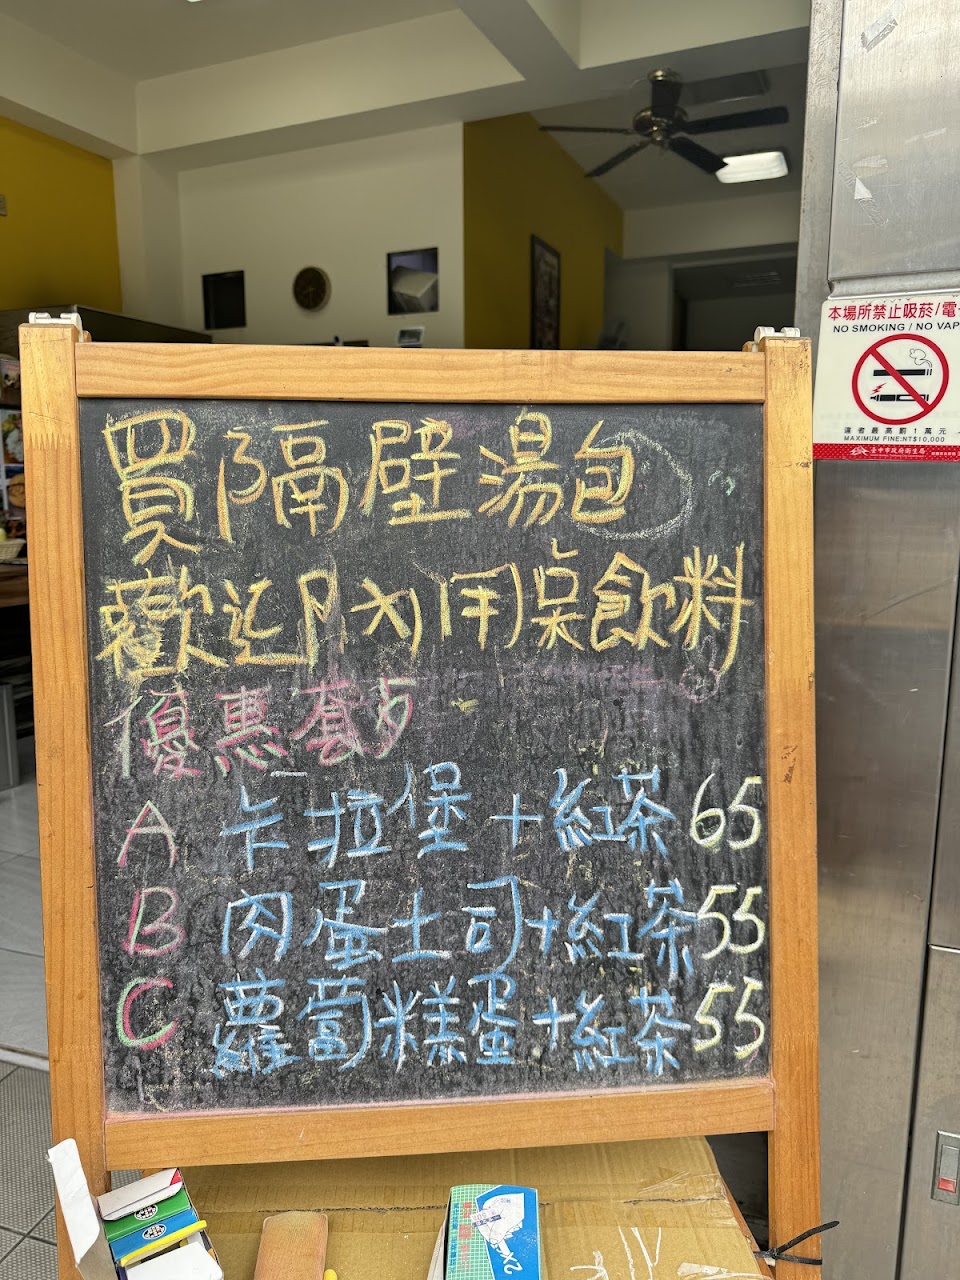 買隔壁湯包
歡迎內用桌飲料
優惠套歺
A 卡拉堡+紅茶 65
B 肉蛋土司+紅茶 55
C 蘿蔔糕蛋+紅茶 55
本場所禁止吸菸/電
NO SMOKING / NO VAP
違者最高罰1萬元
MAXIMUM FINE:NT$10,000
臺中市政府衛生局